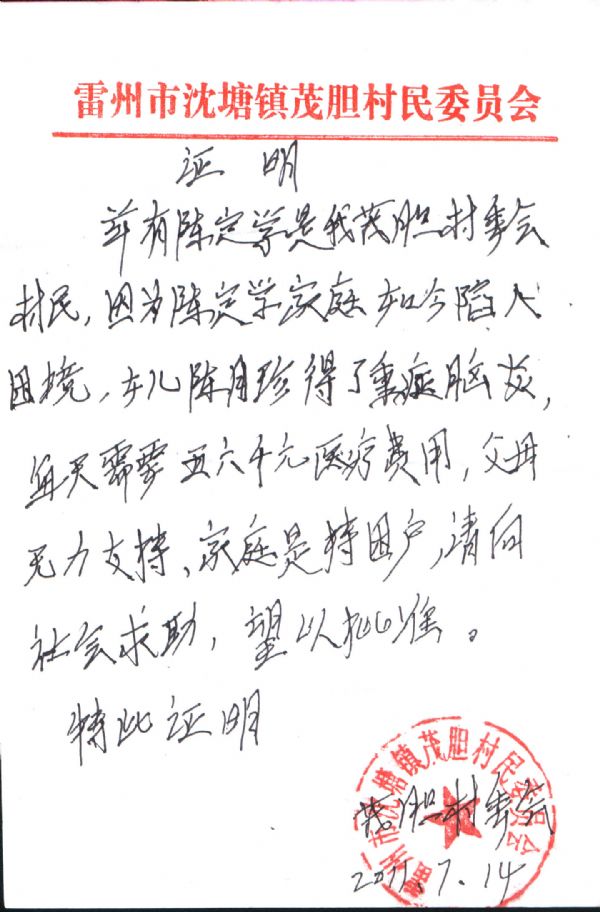 雷州市沈塘镇茂胆村民委员会
证 明
兹有陈定学是我茂胆村委会
村民，因为陈定学家庭如今陷入
困境，女儿陈月珍得了重症脑炎，
每天需要五六千元医疗费用，父母
无力支持、家庭是特困户，请向
社会求助，望以批准。
特此证明
雷州市沈塘镇茂胆村民委员会
茂胆村委会
2011.7.14